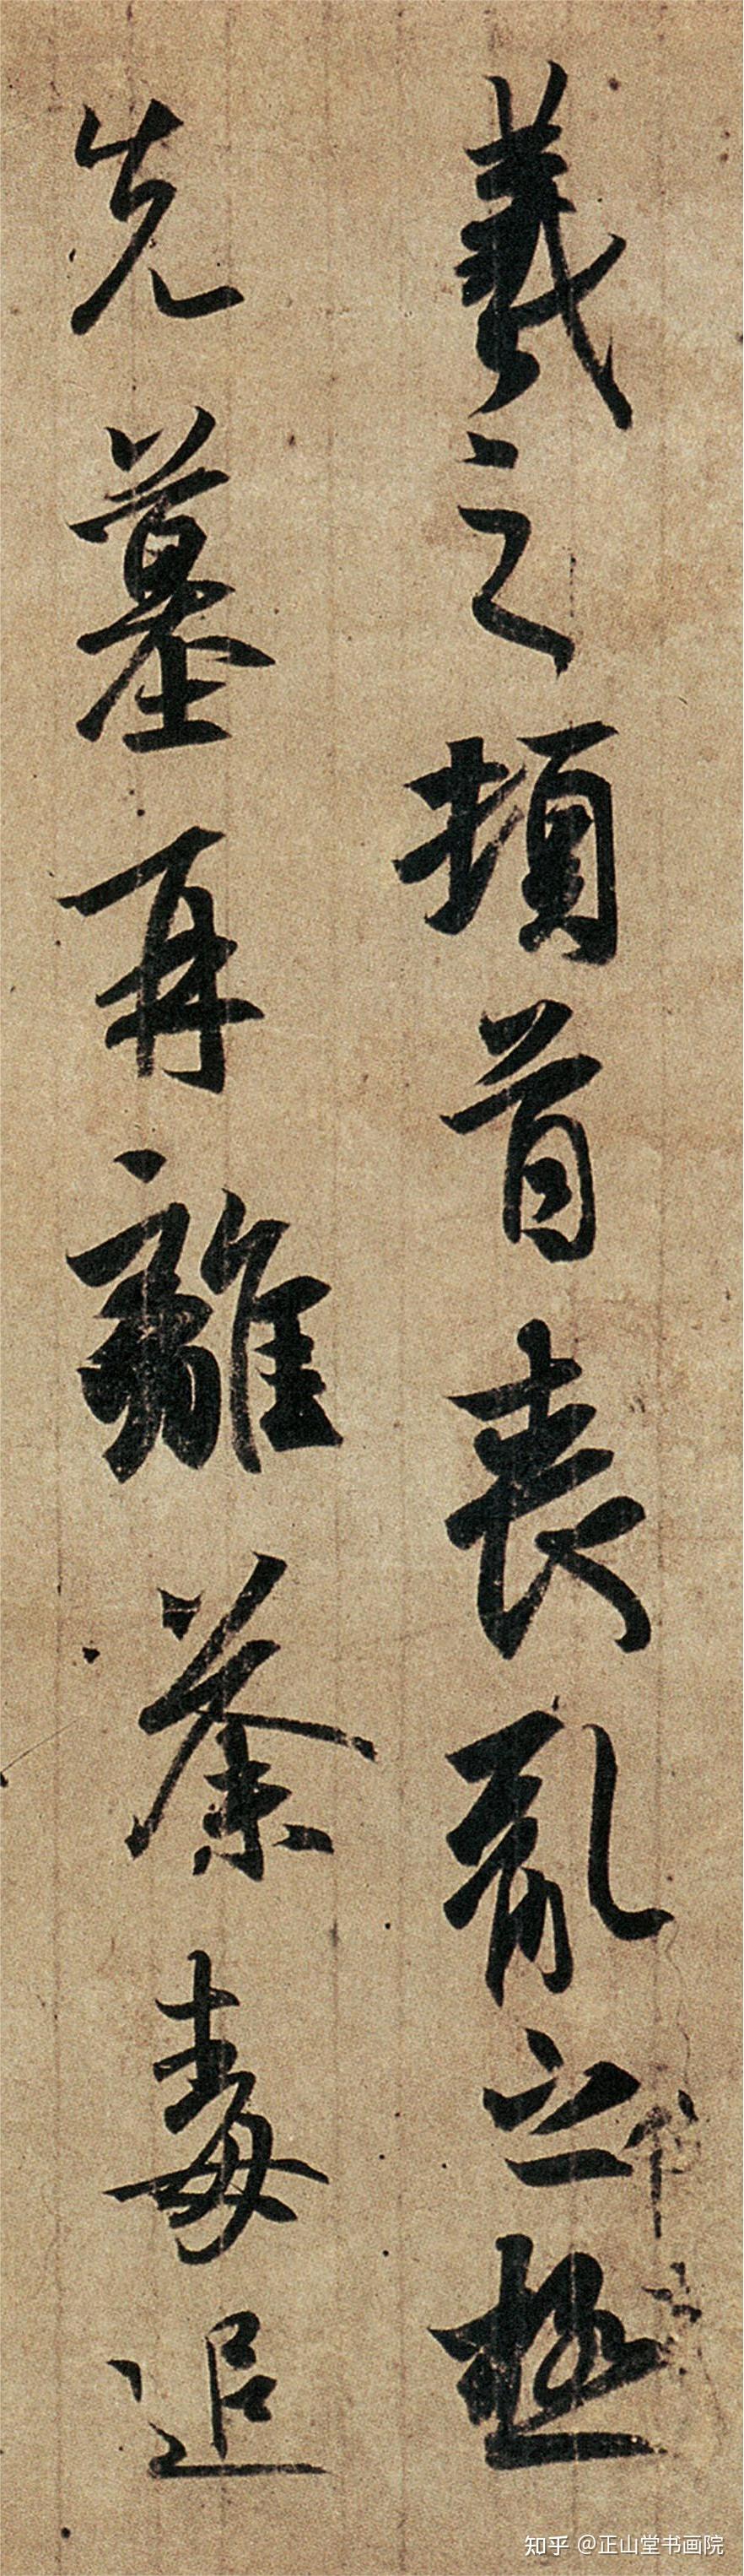 羲之頓首喪亂之極
先墓再離荼毒追
知乎 @正山堂书画院